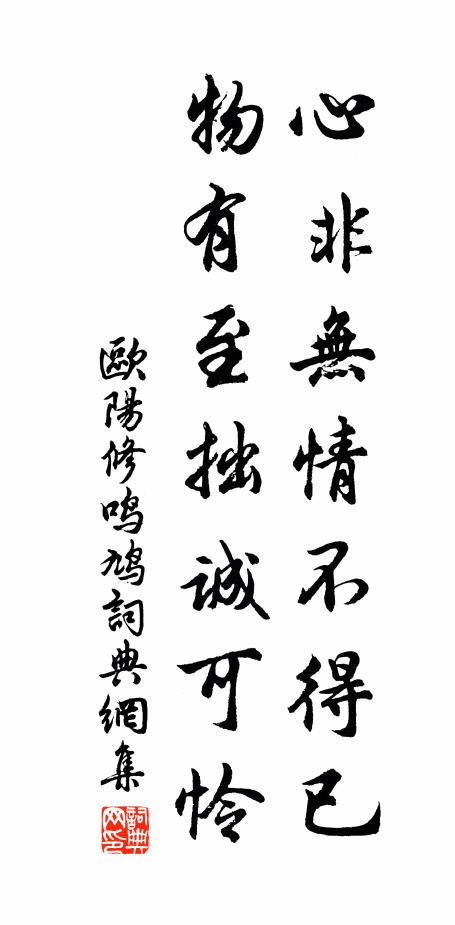 心非無情不得已
物有至拙誠可怜
歐陽修鸣鳩詞典網集
詞典網印